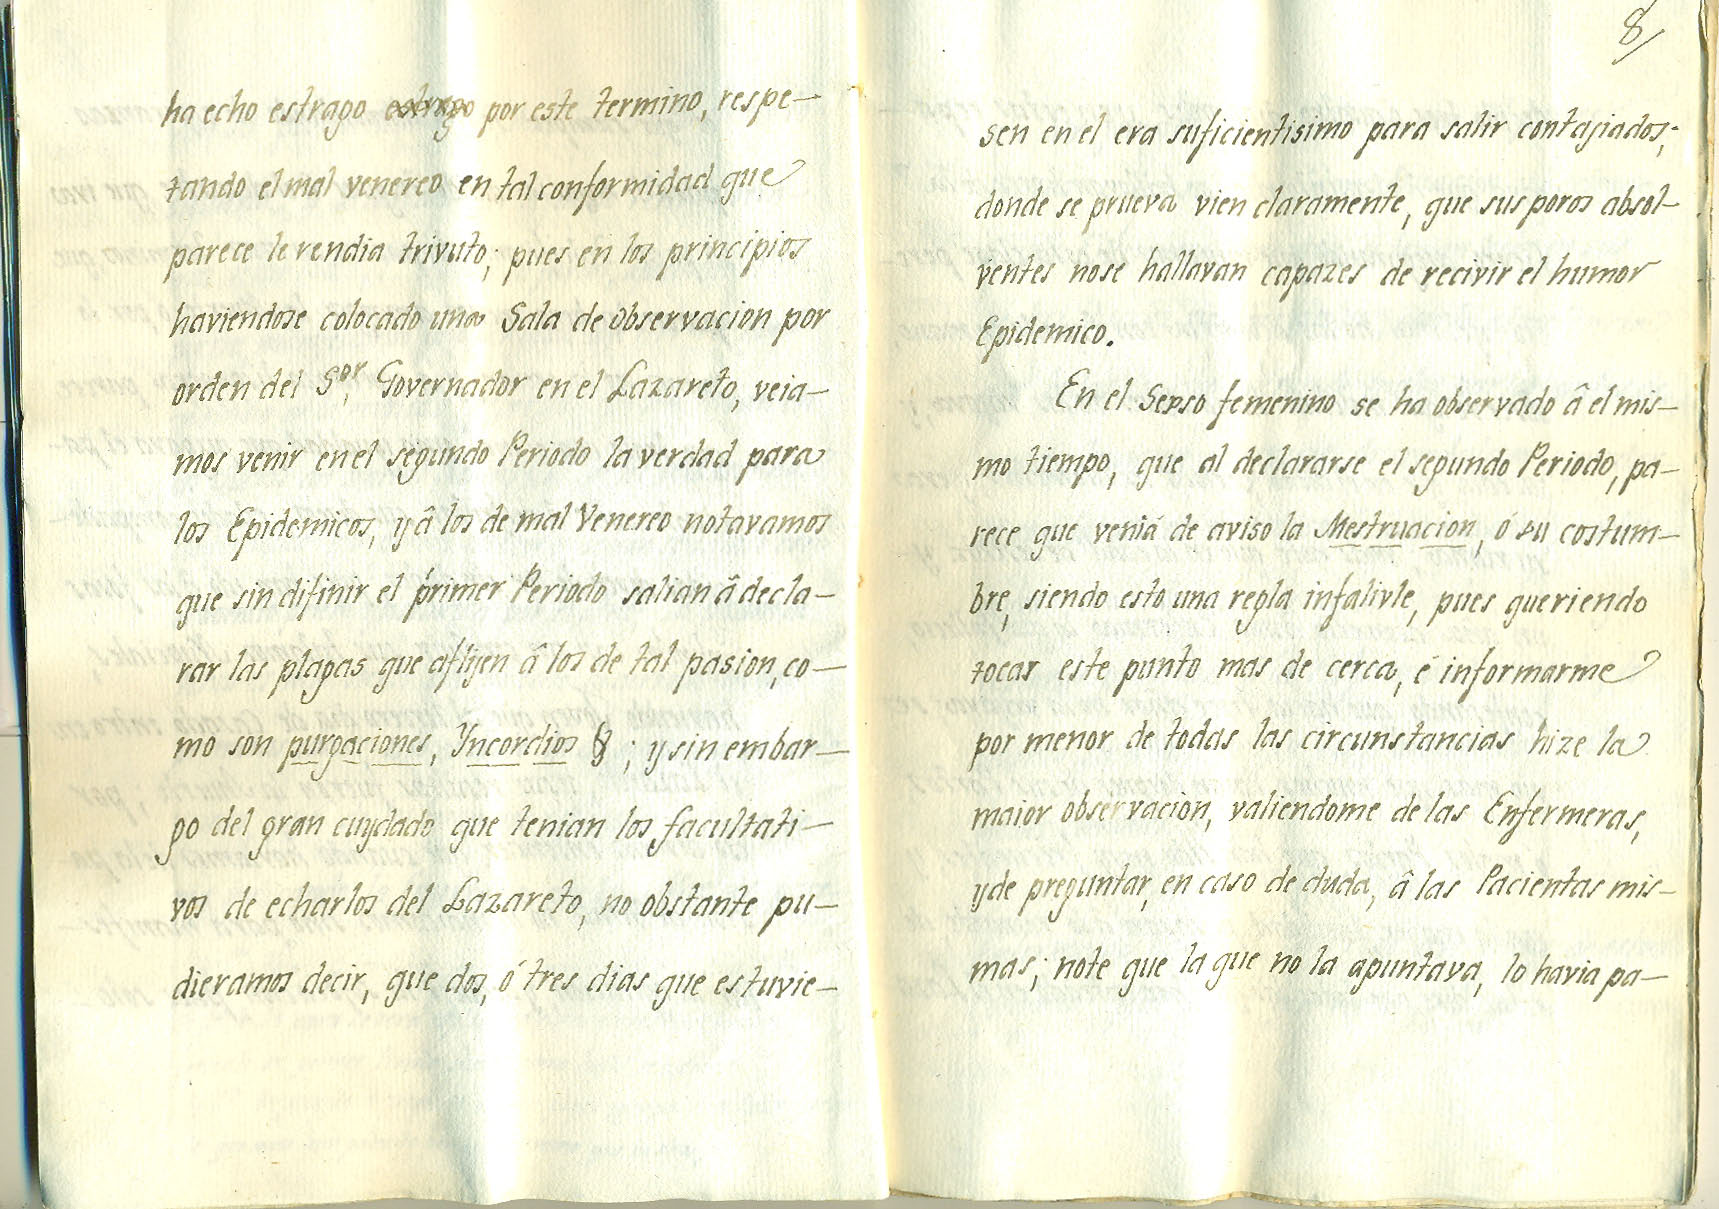 ha echo estrago estrago por este termino, respe-
tando el mal venereo en tal conformidad que
parece le rendia trivuto; pues en los principios
haviendose colocado una Sala de observacion por
orden del S.or Governador en el Lazareto, veia-
mos venir en el segundo Periodo la verdad para
los Epidemicos, y â los de mal Venereo notavamos
que sin difinir el primer Periodo salian â decla-
rar las plagas que aflijen â los de tal pasion, co-
mo son purgaciones, Yncordios &; y sin embar-
go del gran cuydado que tenian los facultati-
vos de echarlos del Lazareto, no obstante pu-
dieramos decir, que dos, ó tres dias que estuvie-
8/
sen en el era suficientisimo para salir contagiados;
donde se prueva vien claramente, que sus poros absol-
ventes no se hallavan capazes de recivir el humor
Epidemico.
En el Sexso femenino se ha observado â el mis-
mo tiempo, que al declararse el segundo Periodo, pa-
rece que venia de aviso la Mestruacion, ó su costum-
bre, siendo esto una regla infalivle, pues queriendo
tocar este punto mas de cerca, é informarme
por menor de todas las circunstancias hize la
maior observacion, valiendome de las Enfermeras,
y de preguntar, en caso de duda, â las Pacientas mis-
mas; note que la que no la apuntava, lo havia pa-